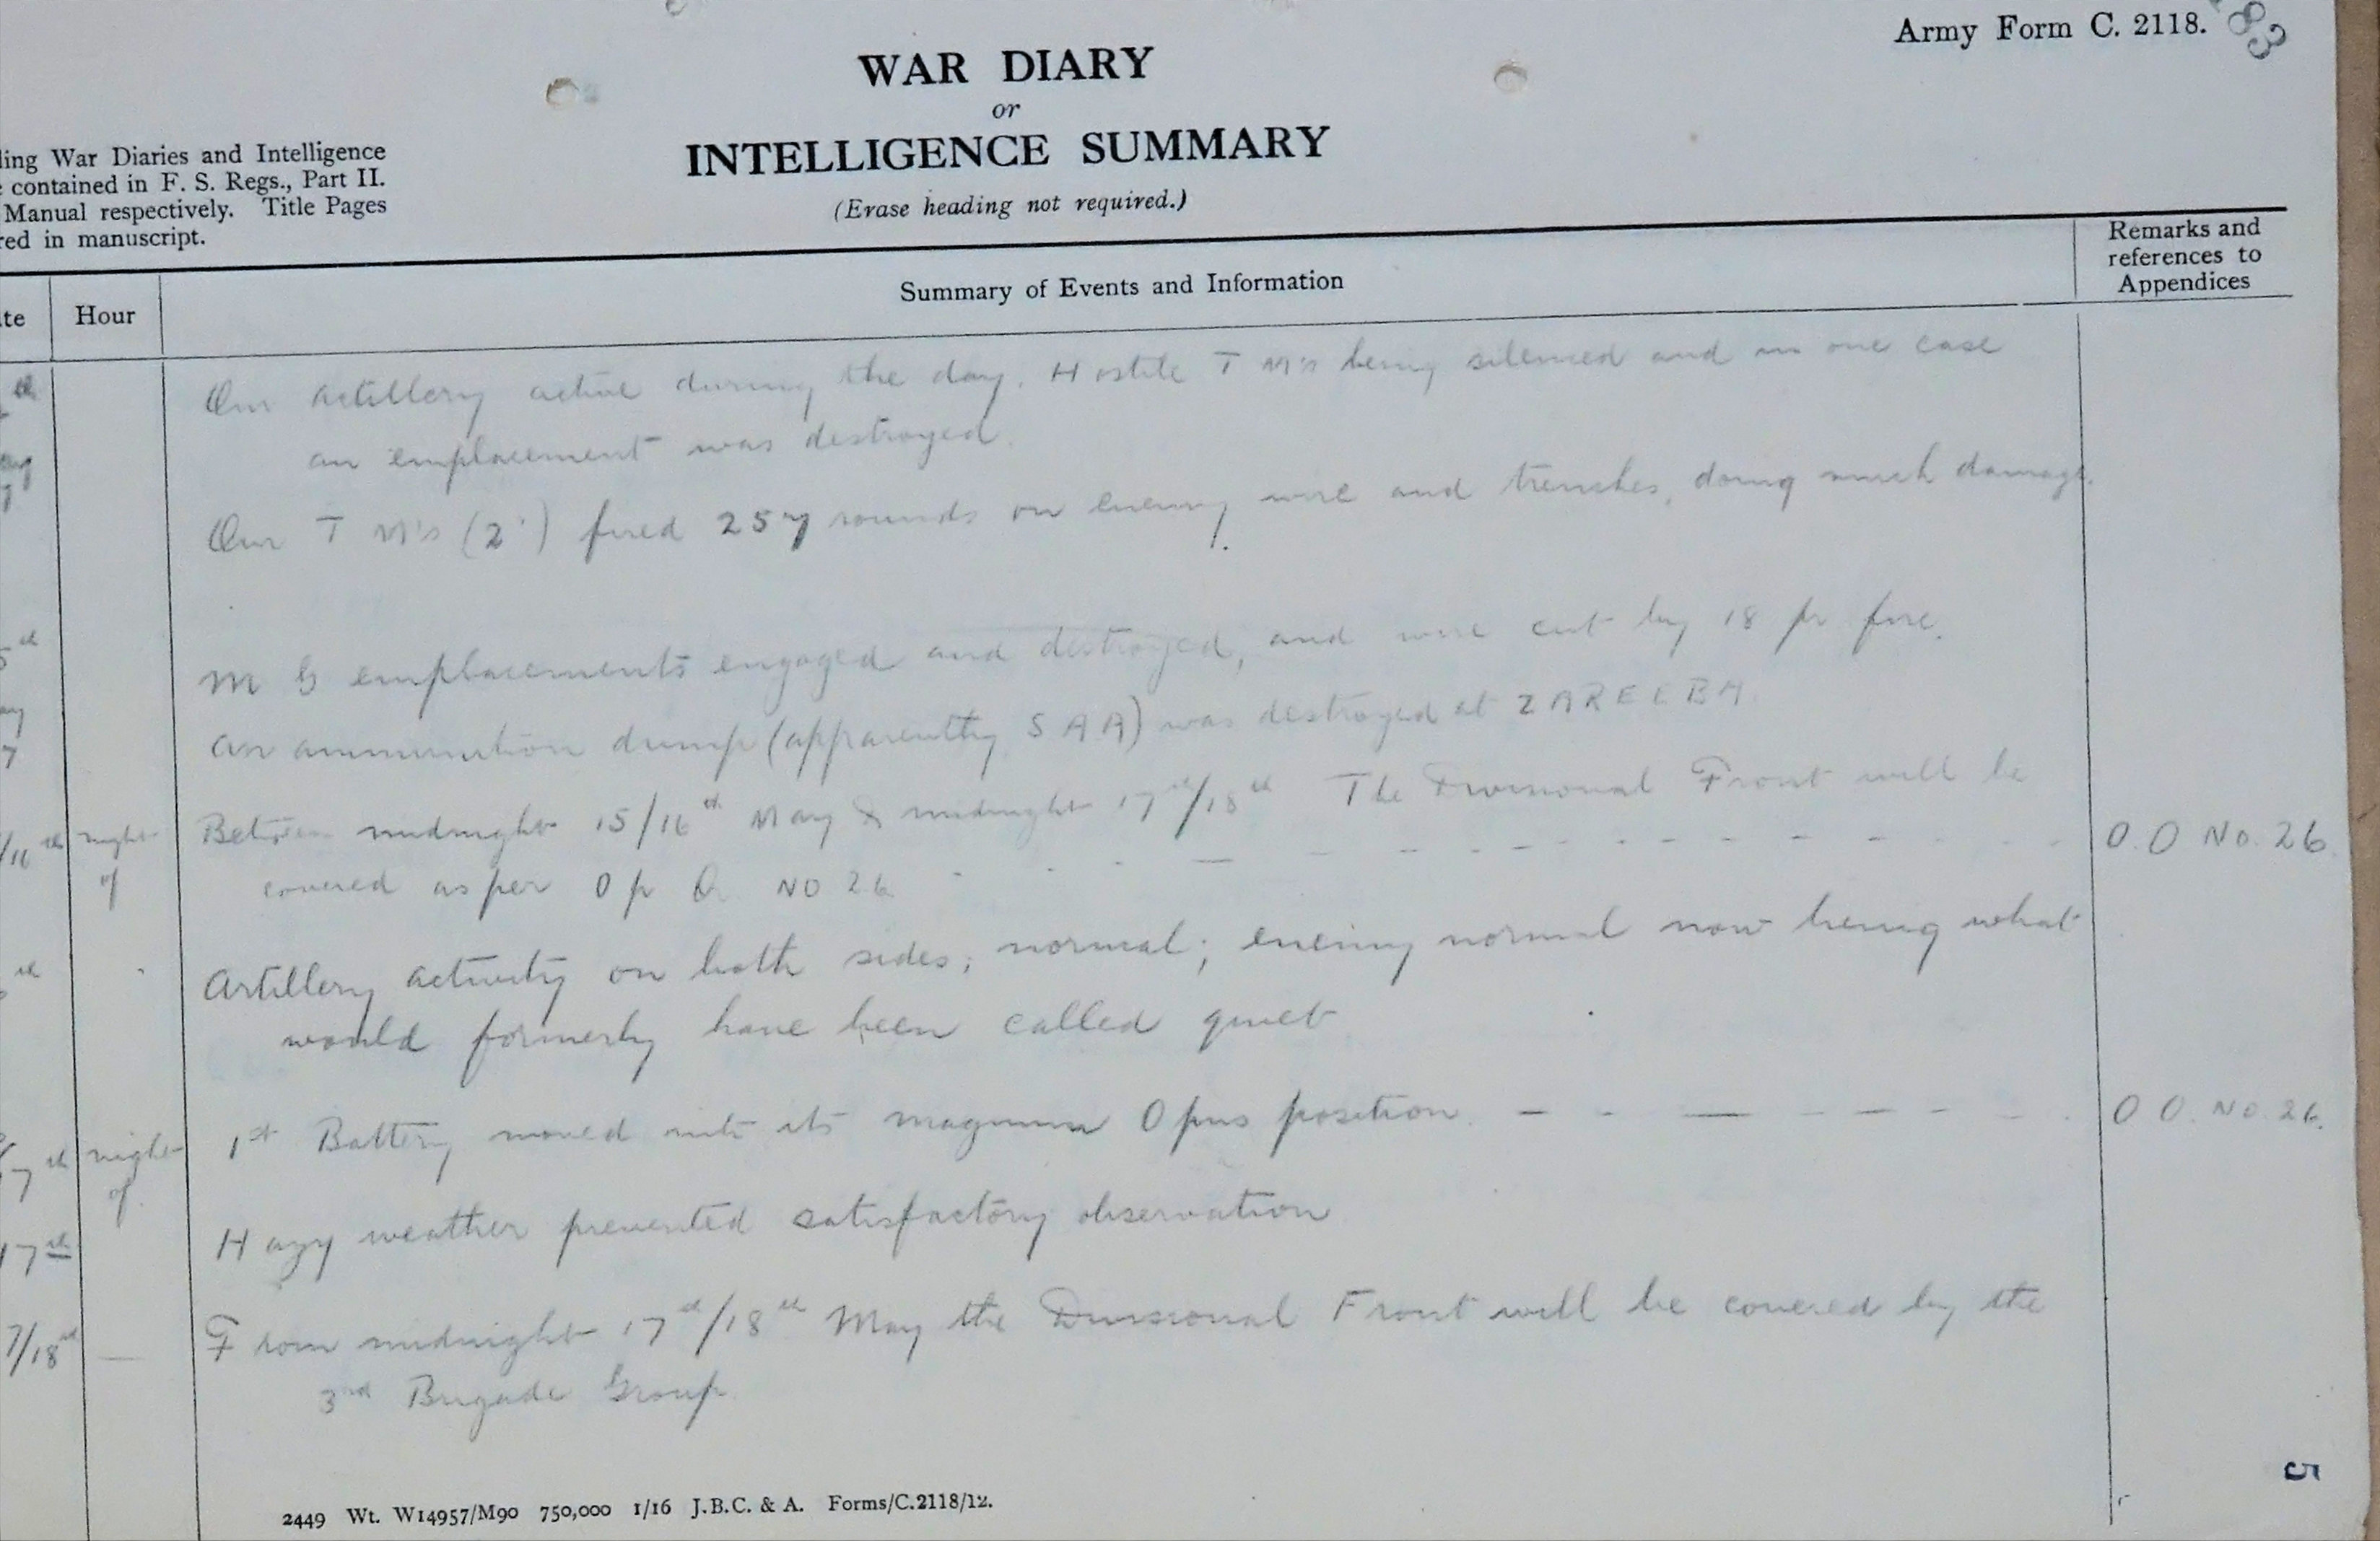 Army Form C. 2118.
83
WAR DIARY
or
INTELLIGENCE SUMMARY
(Erase heading not required.)
ling War Diaries and Intelligence
contained in F. S. Regs., Part II.
Manual respectively. Title Pages
red in manuscript.
te Hour Summary of Events and Information Remarks and
references to
Appendices
th Our artillery active during the day. Hostile T M's being silenced and in one case
an emplacement was destroyed.
Our T M's (2") fired 257 rounds on enemy wire and trenches, doing much damage.
5th M G emplacements engaged and destroyed, and wire cut by 18 pr fire.
7 an ammunition dump (apparently S A A) was destroyed at ZAREEBA.
/16th night of Between midnight 15/16th May & midnight 17th/18th The Divisional Front will be
covered as per Op O. NO 26 O.O No. 26.
th Artillery activity on both sides, normal; enemy normal now being what
would formerly have been called quiet
7th night of 1st Battery moved into its magnum Opus position. O O. NO. 26.
17th Hazy weather prevented satisfactory observation
7/18th — From midnight 17th/18th May the Divisional Front will be covered by the
3rd Brigade Group.
5
2449 Wt. W14957/M90 750,000 1/16 J.B.C. & A. Forms/C.2118/12.